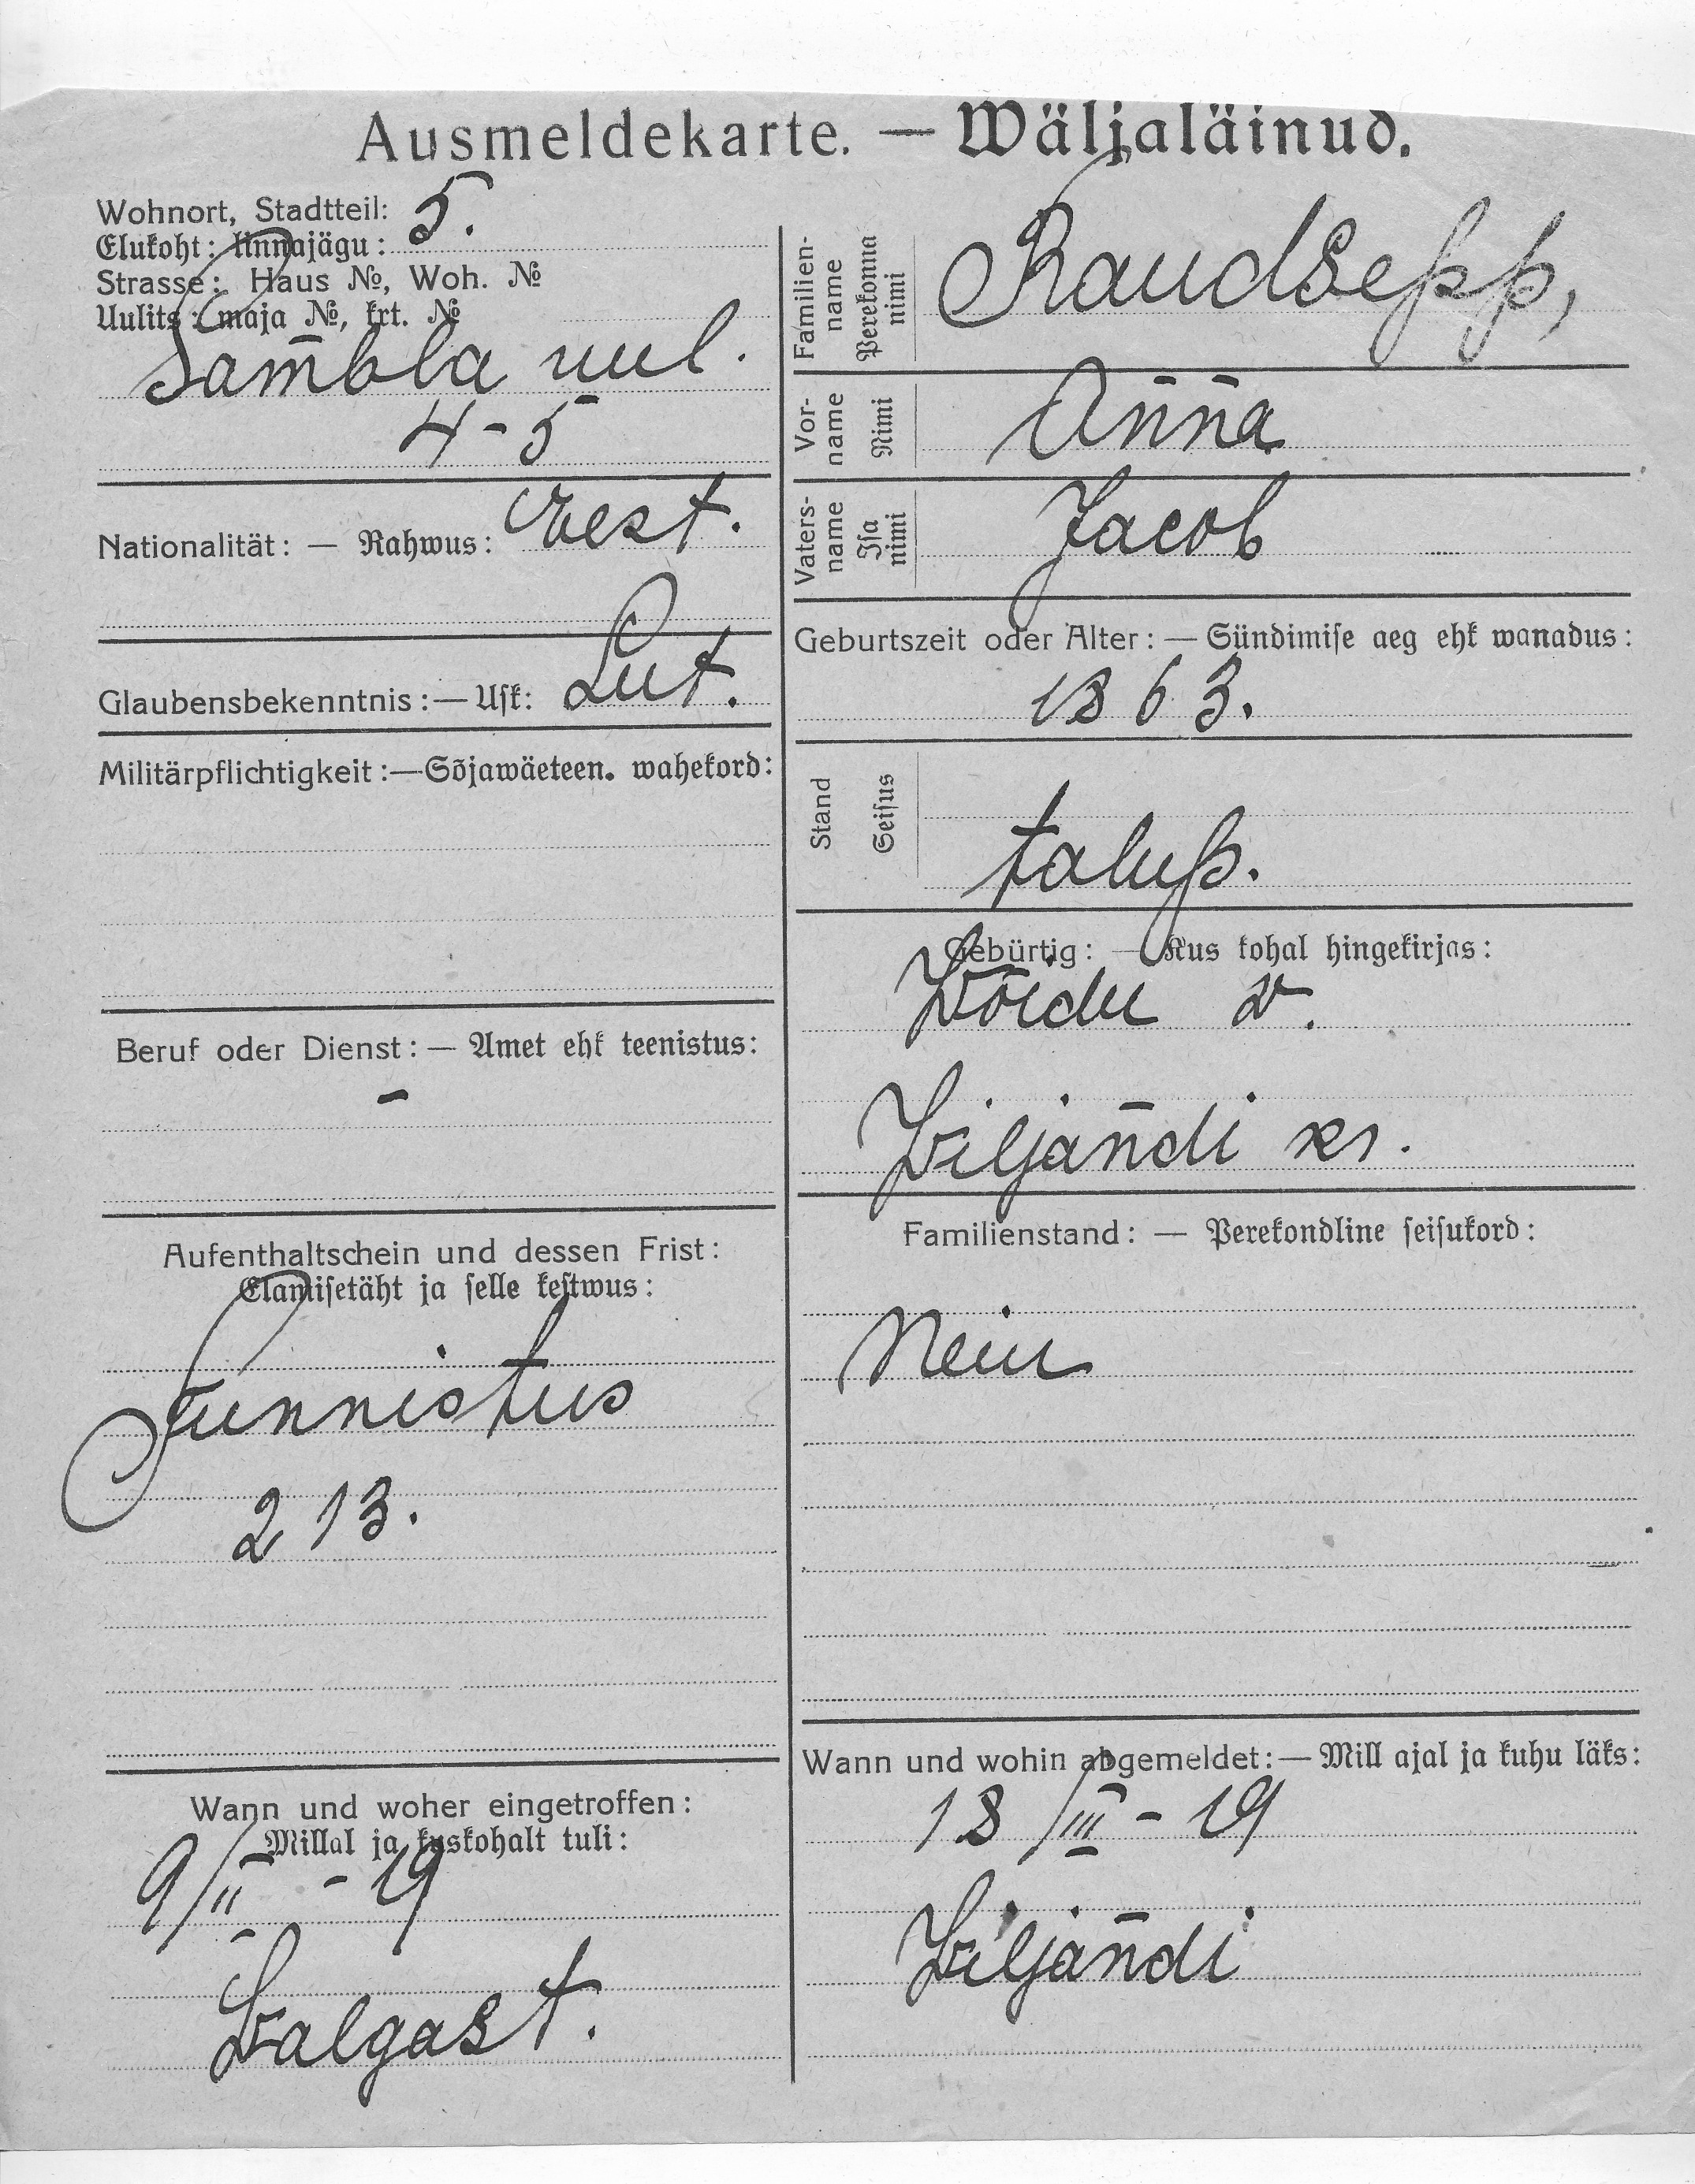 Ausmeldekarte. — Wäljaläinud.
Wohnort, Stadtteil: 5.
Elukoht: linnajägu:
Strasse: Haus №, Woh. №
Uulits: maja №, krt. №
Sam̄bla uul.
4-5
Nationalität: — Rahwus: Eest.
Glaubensbekenntnis: — Usk: Lut.
Militärpflichtigkeit: — Sõjawäeteen. wahekord:
Beruf oder Dienst: — Amet ehk teenistus:
-
Aufenthaltschein und dessen Frist:
Elamisetäht ja selle kestwus:
Tunnistus
213.
Wann und woher eingetroffen:
Millal ja kuskohalt tuli:
9/II - 19
Walgast.
Familien-
name
Perekonna
nimi
Raudsepp,
Vor-
name
Nimi
An̄n̄a
Vaters-
name
Isa
nimi
Jacob
Geburtszeit oder Alter: — Sündimise aeg ehk wanadus:
1863.
Stand
Seisus
talup.
Gebürtig: — Kus kohal hingekirjas:
Wõidu v.
Wiljan̄di kr.
Familienstand: — Perekondline seisukord:
Nein
Wann und wohin abgemeldet: — Mill ajal ja kuhu läks:
18/III - 19
Wiljan̄di